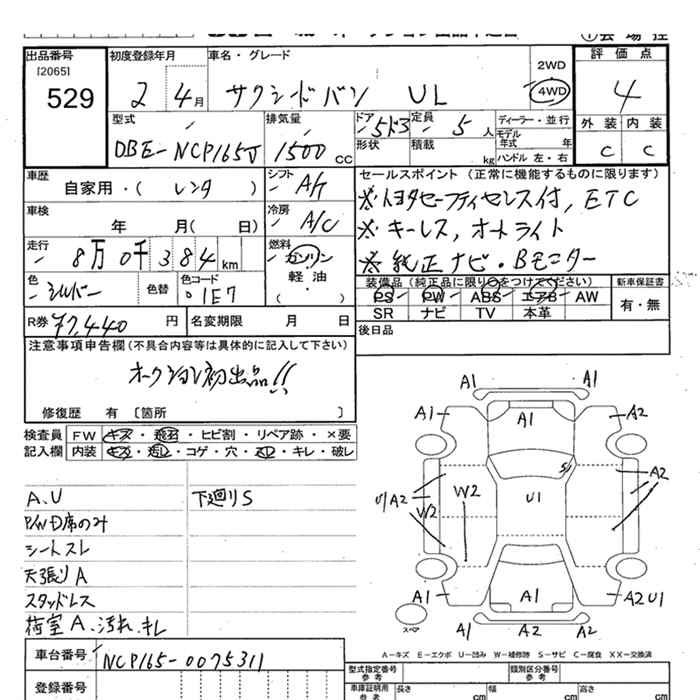 出品番号
[2065]
529
初度登録年月
2 4月
車名・グレード
サクシードバン UL
2WD
4WD
評価点
4
外装 内装
C C
型式
DBE-NCP165V
排気量
1500 CC
ドア 5ドア
形状
定員 5 人
積載 kg
ディーラー・並行
モデル年式 年
ハンドル 左・右
車歴
自家用・( レンタ )
シフト
A/T
セールスポイント (正常に機能するものに限ります)
※トヨタセーフティセンス付, ETC
※キーレス, オートライト
※純正ナビ・Bモニター
車検
年 月( 日)
冷房
A/C
走行
8万0千384km
燃料
ガソリン
軽油
( )
色
シルバー
色替
色コード
1E7
装備品 (純正品に限り○をつけてください)
PS PW ABS エアB AW
SR ナビ TV 本革
新車保証書
有・無
R券 ¥7,440 円
名変期限 月 日
後日品
注意事項申告欄(不具合内容等は具体的に記入して下さい)
オークション初出品!!
修復歴 有 〔箇所 〕
検査員記入欄
FW キズ・飛石・ヒビ割・リペア跡・×要
内装 キズ・汚レ・コゲ・穴・スレ・キレ・破レ
A.U
P/W D席のみ
シートスレ
天張りA
スタッドレス
荷室A.汚れ.キレ
下廻りS
A1 A1
A1 A1 A2
S
U/A2 W2 W2 U1 A2
A1 A1 A2U1
A1 A2 A2
スペア
A-キズ E-エクボ U-凹み W-補修跡 S-サビ C-腐食 XX-交換済
車台番号
NCP165-0075311
登録番号
型式指定番号
参考
類別区分番号
参考
車庫証明用
参考
長さ cm
幅 cm
高さ cm